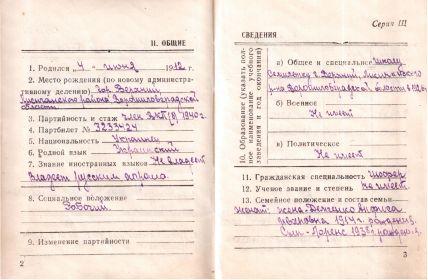 II. ОБЩИЕ
1. Родился „4“ июня 1912 г.
2. Место рождения (по новому административному делению)
района Ворошиловградской
области
3. Партийность и стаж член ВКП(б) 1940 г.
4. Партбилет № 3233424
5. Национальность Украинец
6. Родной язык Украинский
7. Знание иностранных языков Не владеет
владеет русским
8. Социальное положение
Рабочий
9. Изменение партийности
2
Серия Щ
СВЕДЕНИЯ
10. Образование (указать полное наименование учебного заведения и год окончания)
а) Общее и специальное школу
семилетку
р-на Ворошиловградской области
б) Военное
Не имеет
в) Политическое
Не имеет
11. Гражданская специальность шофер
12. Ученое звание и степень Не имеет.
13. Семейное положение и состав семьи
женат: жена-
1914 г. рождения.
Сын- 1938 г. рожден.
3